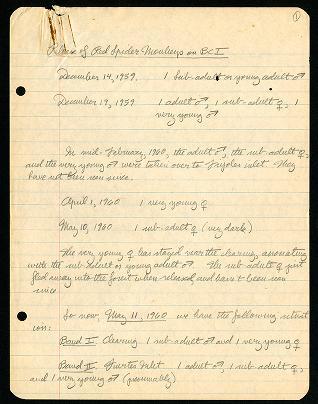 ①
Release of Red Spider Monkeys on BCI
December 14, 1959. 1 sub-adult or young adult ♂
December 19, 1959 1 adult ♂, 1 sub-adult ♀, 1
very young ♂
In mid-February, 1960, the adult ♂, the sub-adult ♀,
and the very young ♂ were taken over to Frijoles inlet. They
have not been seen since.
April 1, 1960 1 very young ♀
May 10, 1960 1 sub-adult ♀ (very dark)
The very young ♀ has stayed near the clearing, associating
with the sub-adult or young adult ♂. The sub-adult ♀ just
fled away into the forest when released and hasn't been seen
since.
So now, May 11, 1960, we have the following situat
ion:
Band I. Clearing. 1 sub-adult ♂ and 1 very young ♀
Band II. Inlet 1 adult ♂, 1 sub-adult ♀,
and 1 very young ♂ (presumably)